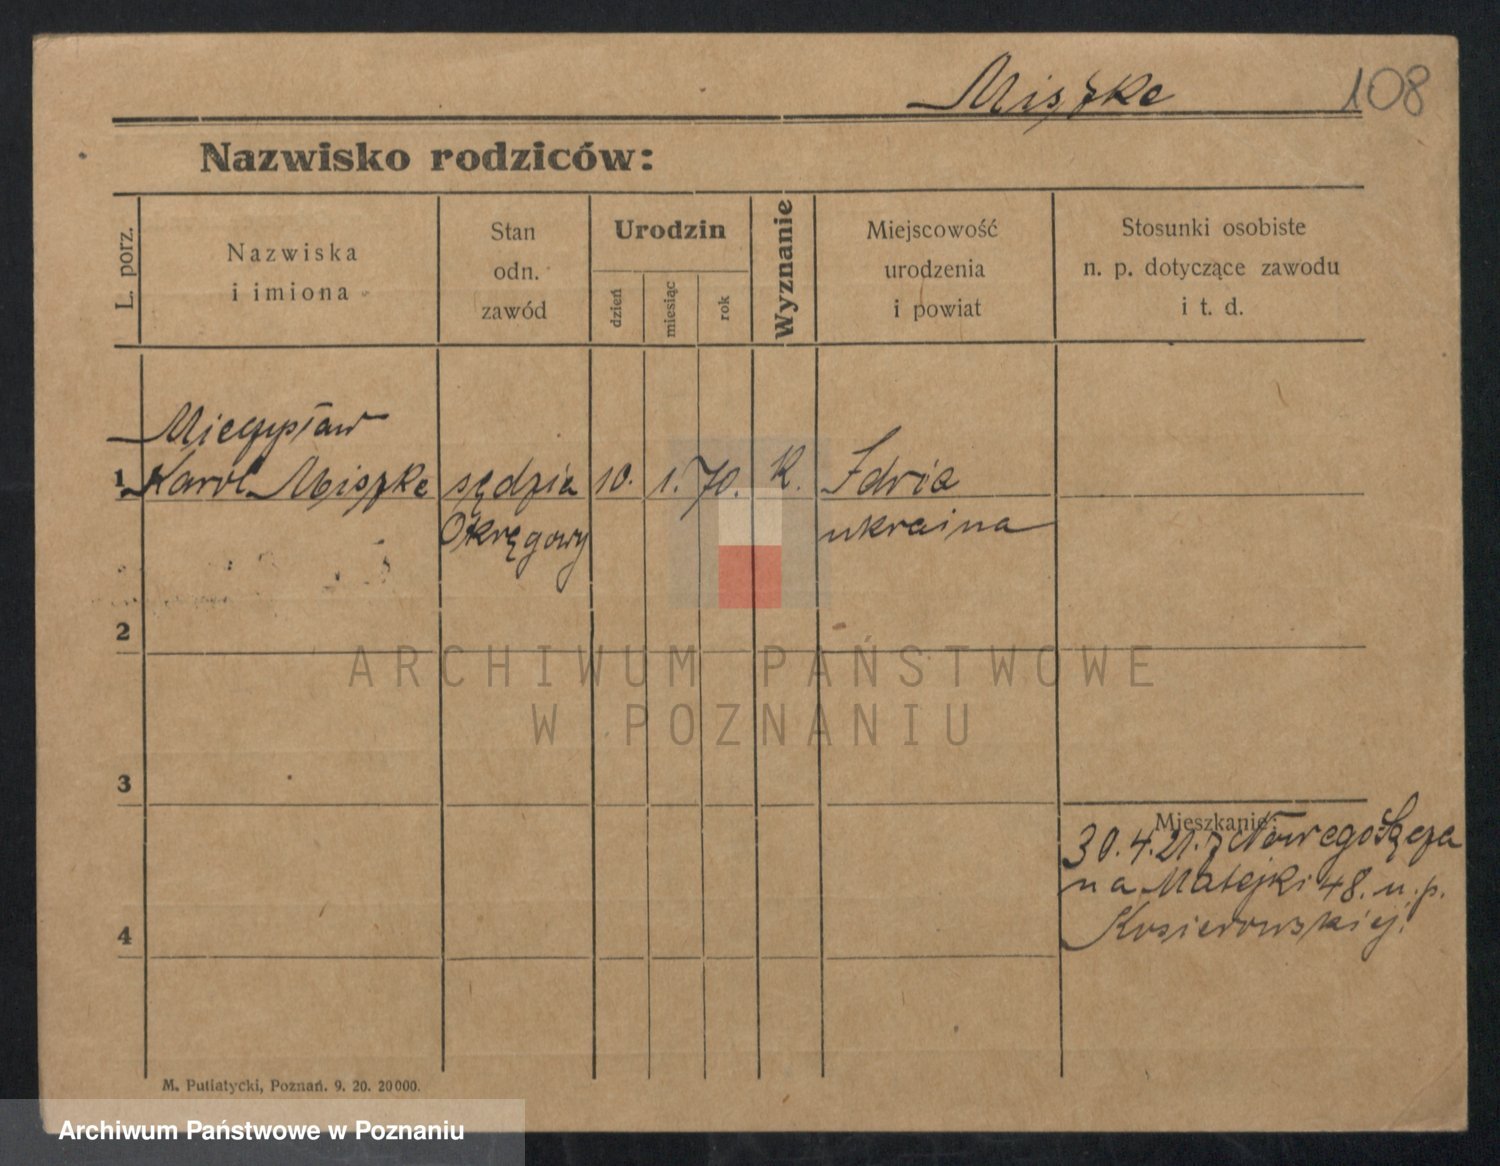 Miszke 108
Nazwisko rodziców:
L. porz.
Nazwiska
i imiona
Stan
odn.
zawód
Urodzin
dzień
miesiąc
rok
Wyznanie
Miejscowość
urodzenia
i powiat
Stosunki osobiste
n. p. dotyczące zawodu
i t. d.
Mieczysław
1 Karol Miszke sędzia 10. 1. 70. K. Idria
Okręgowy ukraina
2
ARCHIWUM PAŃSTWOWE
W POZNANIU
3
Mieszkanie:
30.4.21. z Nowego Sącza
na Matejki 48. u. p.
Kosierowskiej.
4
M. Putiatycki, Poznań. 9. 20. 20000.
Archiwum Państwowe w Poznaniu